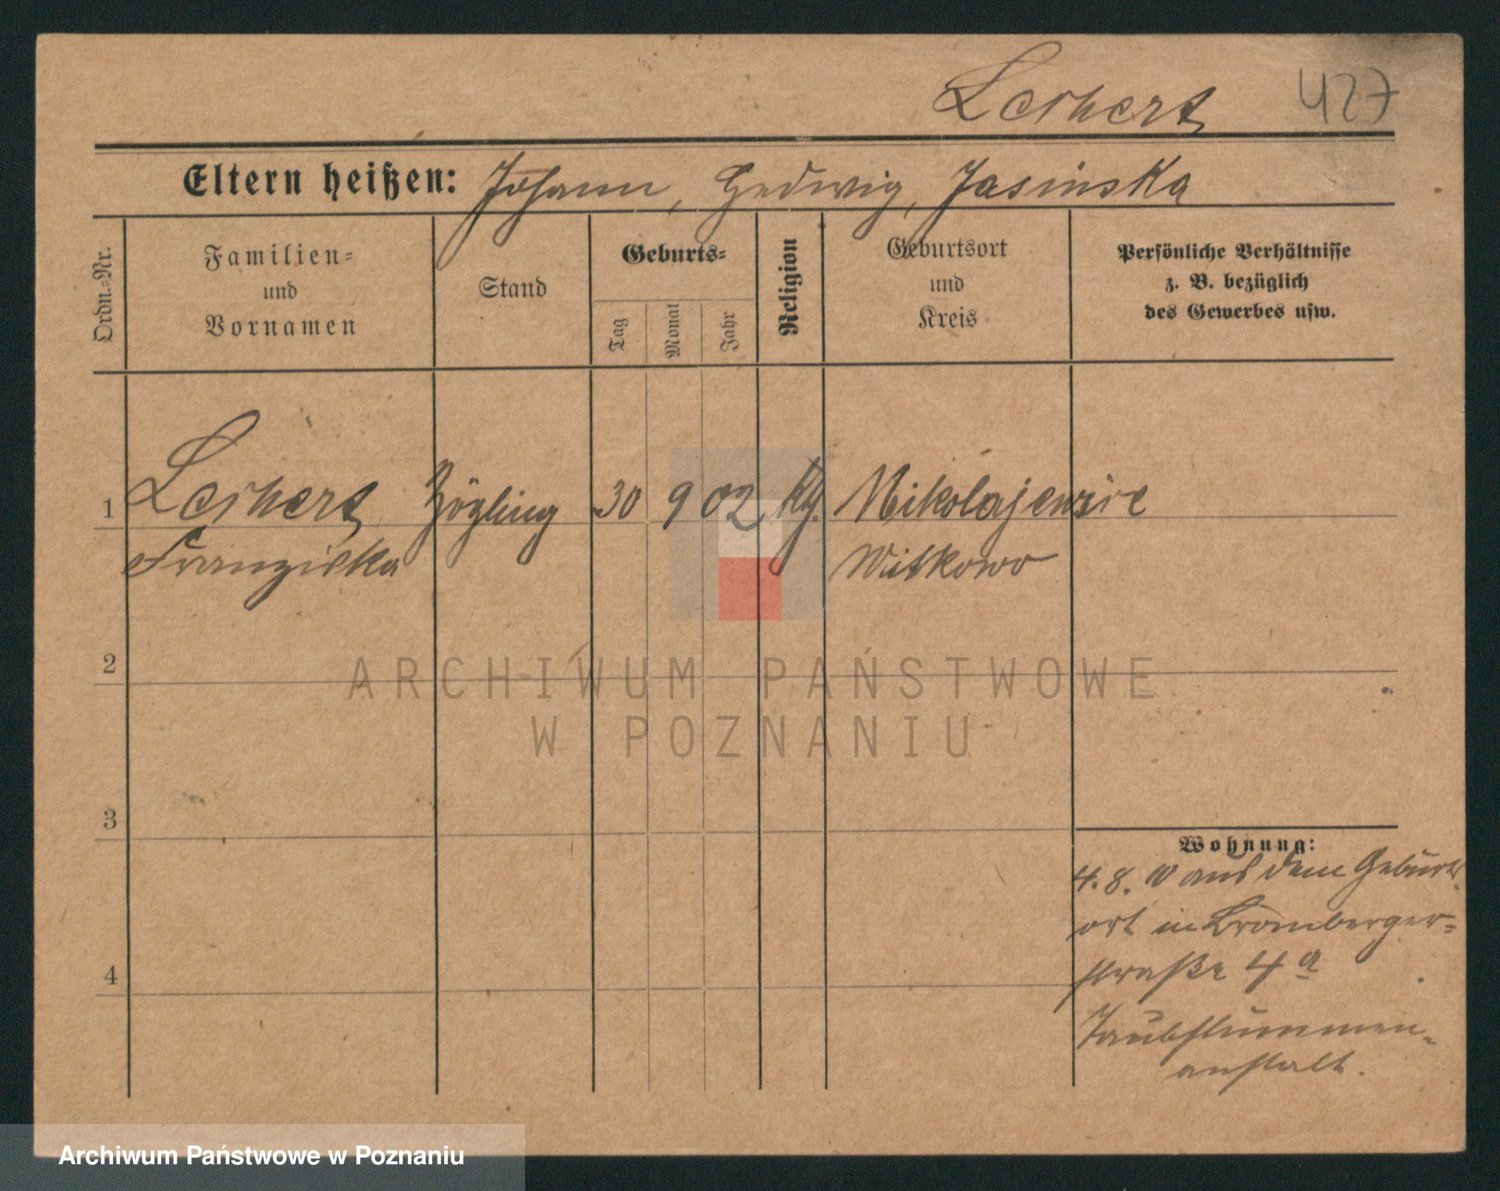 Leihert 427
Eltern heißen: Johann, Hedwig, Jasinska
Ordn.-Nr.
Familien-
und
Vornamen
Stand
Geburts-
Tag
Monat
Jahr
Religion
Geburtsort
und
Kreis
Persönliche Verhältnisse
z. B. bezüglich
des Gewerbes usw.
1 Leihert Zögling 30 9 02 Kth. Mikolajewice
Franziska Witkowo
2
ARCHIWUM PAŃSTWOWE
W POZNANIU
3
Wohnung:
4. 8. 10 aus dem Geburts-
ort in Bromberger-
straße 4a
4
Taubstummen-
anstalt.
Archiwum Państwowe w Poznaniu